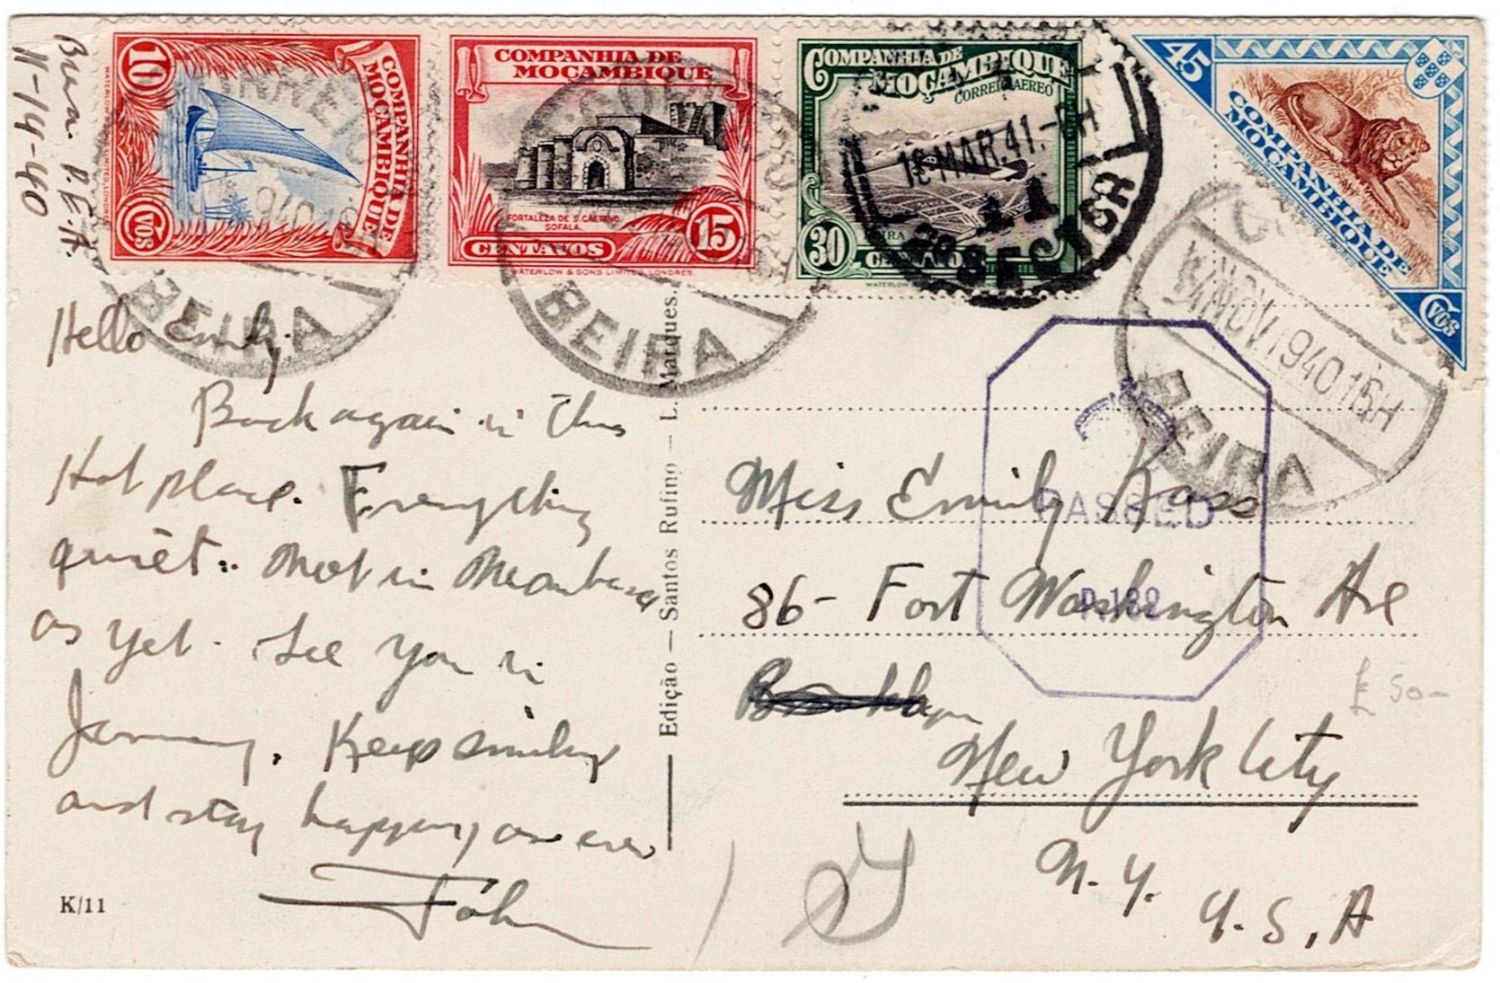 Beira P.E.A.
11-14-40
10
CVOS
COMPANHIA DE
MOÇAMBIQUE
CORREIOS
BEIRA
COMPANHIA DE
MOÇAMBIQUE
FORTALEZA DE S. CAETANO
SOFALA.
15
CENTAVOS
WATERLOW & SONS LIMITED, LONDRES.
CORREIOS
BEIRA
COMPANHIA DE
MOÇAMBIQUE
CORREIO AEREO
30
CENTAVOS
WATERLOW
18 MAR.41
11
45
COMPANHIA DE
MOÇAMBIQUE
CVOS
NOV.1940.15H
BEIRA
Hello Emily
Back again in this
Hot place. Everything
quiet.. Not in
as yet. See you in
January. Keep smiling
and stay happy as ever
John
K/11
Edição — Santos Rufino — L. Marques.
PASSED
Miss Emily Kass
86- Fort Washington Ave
Brooklyn
New York City
N.Y. U.S.A
£50-